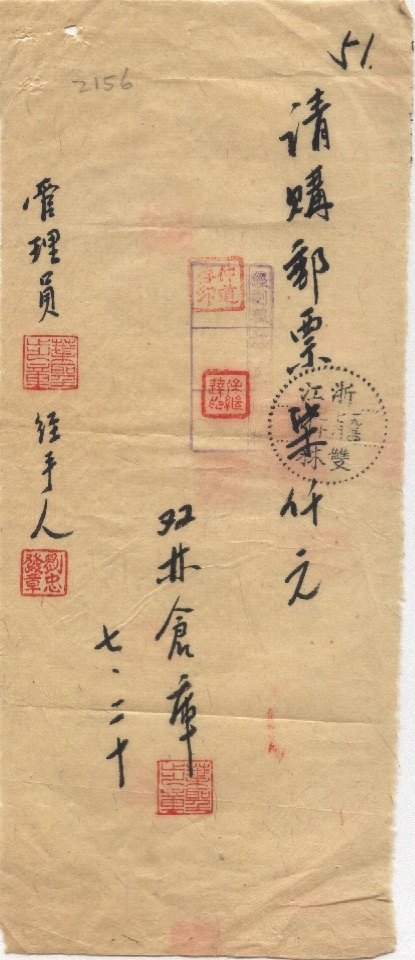 51.
2156
请購郵票柒仟元
双林倉庫
七.二十
管理員
経手人
浙江
雙林
劉忠發章